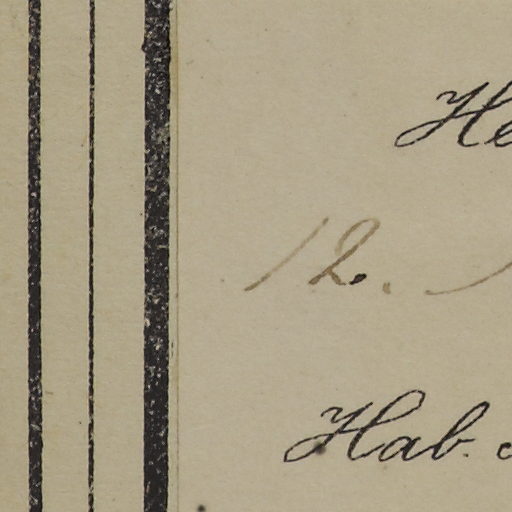 He
12.
Hab.